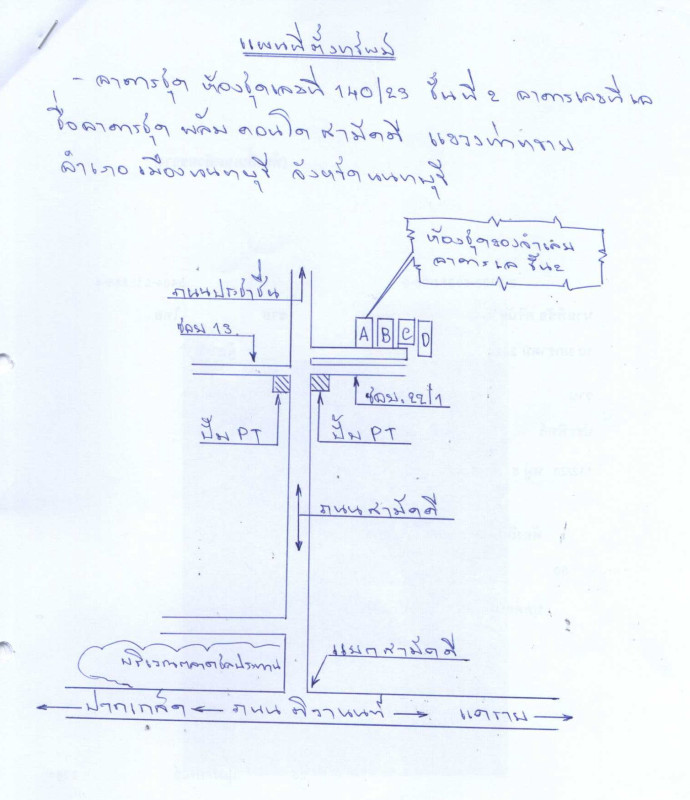 แผนที่ตั้งทรัพย์
- อาคารชุด ห้องชุดเลขที่ 140/23 ชั้นที่ 2 อาคารเลขที่ เอ
ชื่ออาคารชุด พลัม คอนโด สามัคคี แขวงท่าทราย
อำเภอ เมืองนนทบุรี จังหวัดนนทบุรี
ห้องชุดของจำเลย
อาคาร เอ ชั้น 2
ถนนประชาชื่น
ซอย 13
A B C D
ซอย.22/1
ปั๊ม PT
ปั๊ม PT
ถนน สามัคคี
แยกสามัคคี
บริเวณตลาดชลประทาน
ปากเกร็ด ถนน ติวานนท์ แคราย